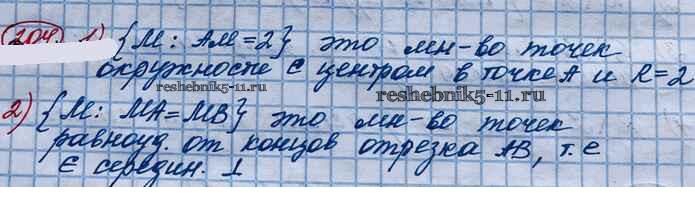 204. 1) {M: AM=2} это мн-во точек
окружности с центром в точке A и R=2
reshebnik5-11.ru
reshebnik5-11.ru
2) {M: MA=MB} это мн-во точек
равноуд. от концов отрезка AB, т.е
∈ середин. ⊥